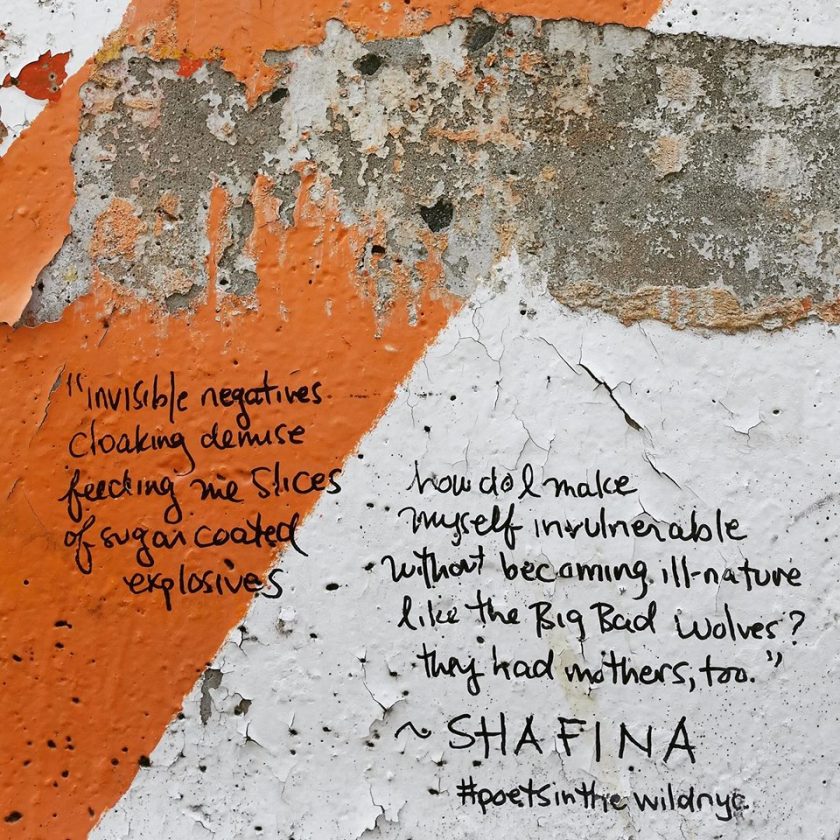 "invisible negatives
cloaking demise
feeding me slices
of sugar coated
explosives
how do I make
myself invulnerable
without becoming ill-nature
like the Big Bad Wolves?
they had mothers, too."
~ SHAFINA
#poetsinthewildnyc